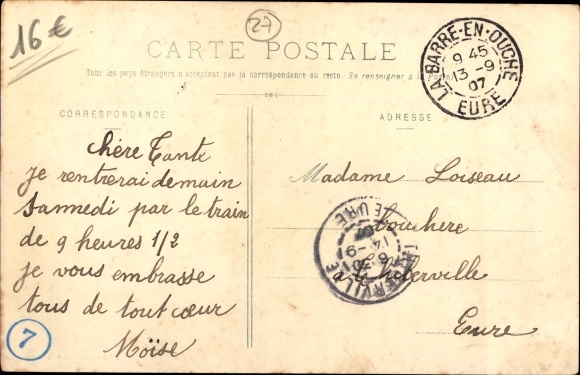 16 €
27
CARTE POSTALE
Tous les pays étrangers n'acceptent pas la correspondance au recto - Se renseigner à la Poste
LA BARRE-EN-OUCHE
9 45
13 -9
07
EURE
CORRESPONDANCE
ADRESSE
Chère Tante
Je rentrerai demain
samedi par le train
de 9 heures 1/2
je vous embrasse
tous de tout cœur
Moïse
7
Madame Loiseau
bouchère
à
Eure
EURE
14 -9